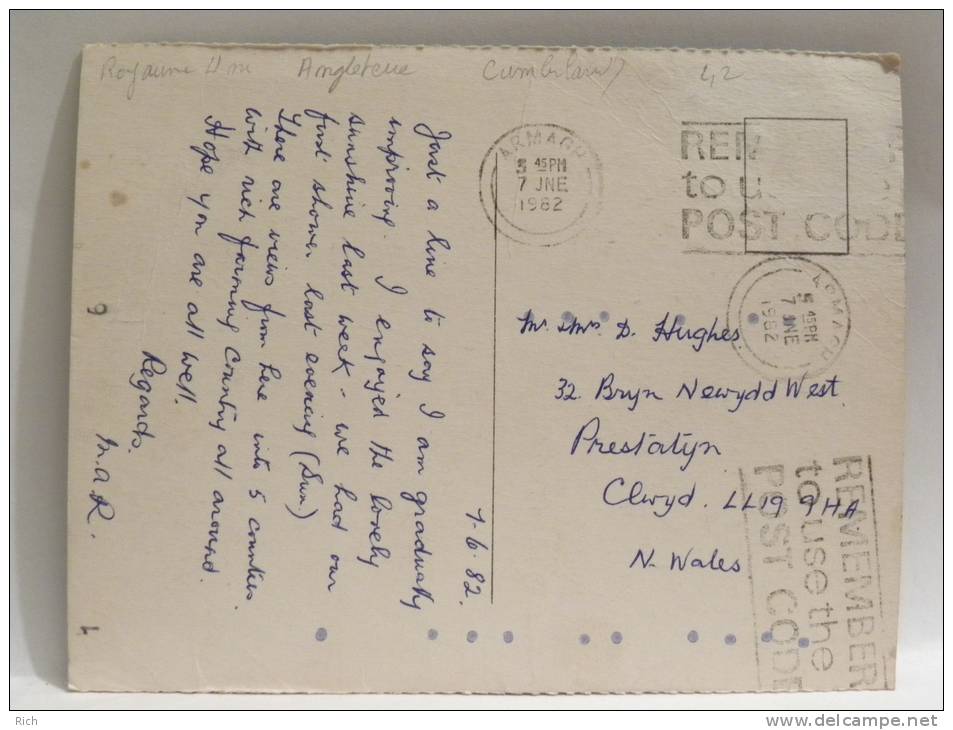 Royaume Uni Angleterre Cumberland 42
7-6.82.
Just a line to say I am gradually
improving. I enjoyed the lovely
sunshine last week - we had our
first shower last evening (Sun.)
There are views from here into 5 counties
with rich farming country all around.
Hope you are all well.
Regards.
M.A.R.
ARMAGH
5 45PM
7 JNE
1982
REM
to u
POST CODE
ARMAGH
5 45PM
7 JNE
1982
Mr. & Mrs D. Hughes
32 Bryn Newydd West.
Prestatyn
Clwyd. LL19 9HA
N. Wales
REMEMBER
to use the
POST CODE
Rich
http://www.delcampe.net